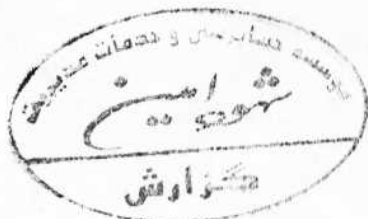 موسسه حسابرسی و خدمات مدیریت
شهود امین
گزارش